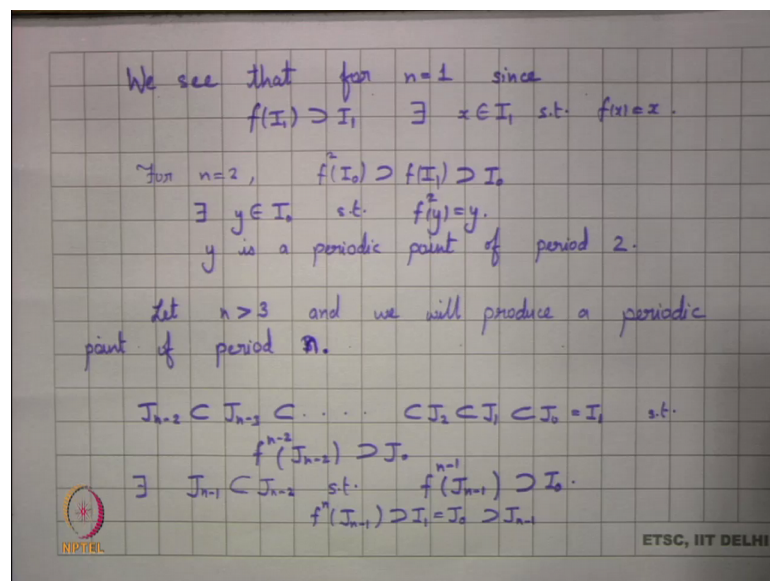 We see that for n=1 since
f(I₁) ⊃ I₁ ∃ x ∈ I₁ s.t. f(x)=x.
For n=2, f²(I₀) ⊃ f(I₁) ⊃ I₀
∃ y ∈ I₀ s.t. f²(y)=y.
y is a periodic point of period 2.
Let n>3 and we will produce a periodic
point of period n.
Jₙ₋₂ ⊂ Jₙ₋₃ ⊂ . . . . ⊂ J₂ ⊂ J₁ ⊂ J₀ = I₁ s.t.
fⁿ⁻²(Jₙ₋₂) ⊃ J₀
∃ Jₙ₋₁ ⊂ Jₙ₋₂ s.t. fⁿ⁻¹(Jₙ₋₁) ⊃ I₀.
fⁿ(Jₙ₋₁) ⊃ I₁ = J₀ ⊃ Jₙ₋₁
NPTEL
ETSC, IIT DELHI